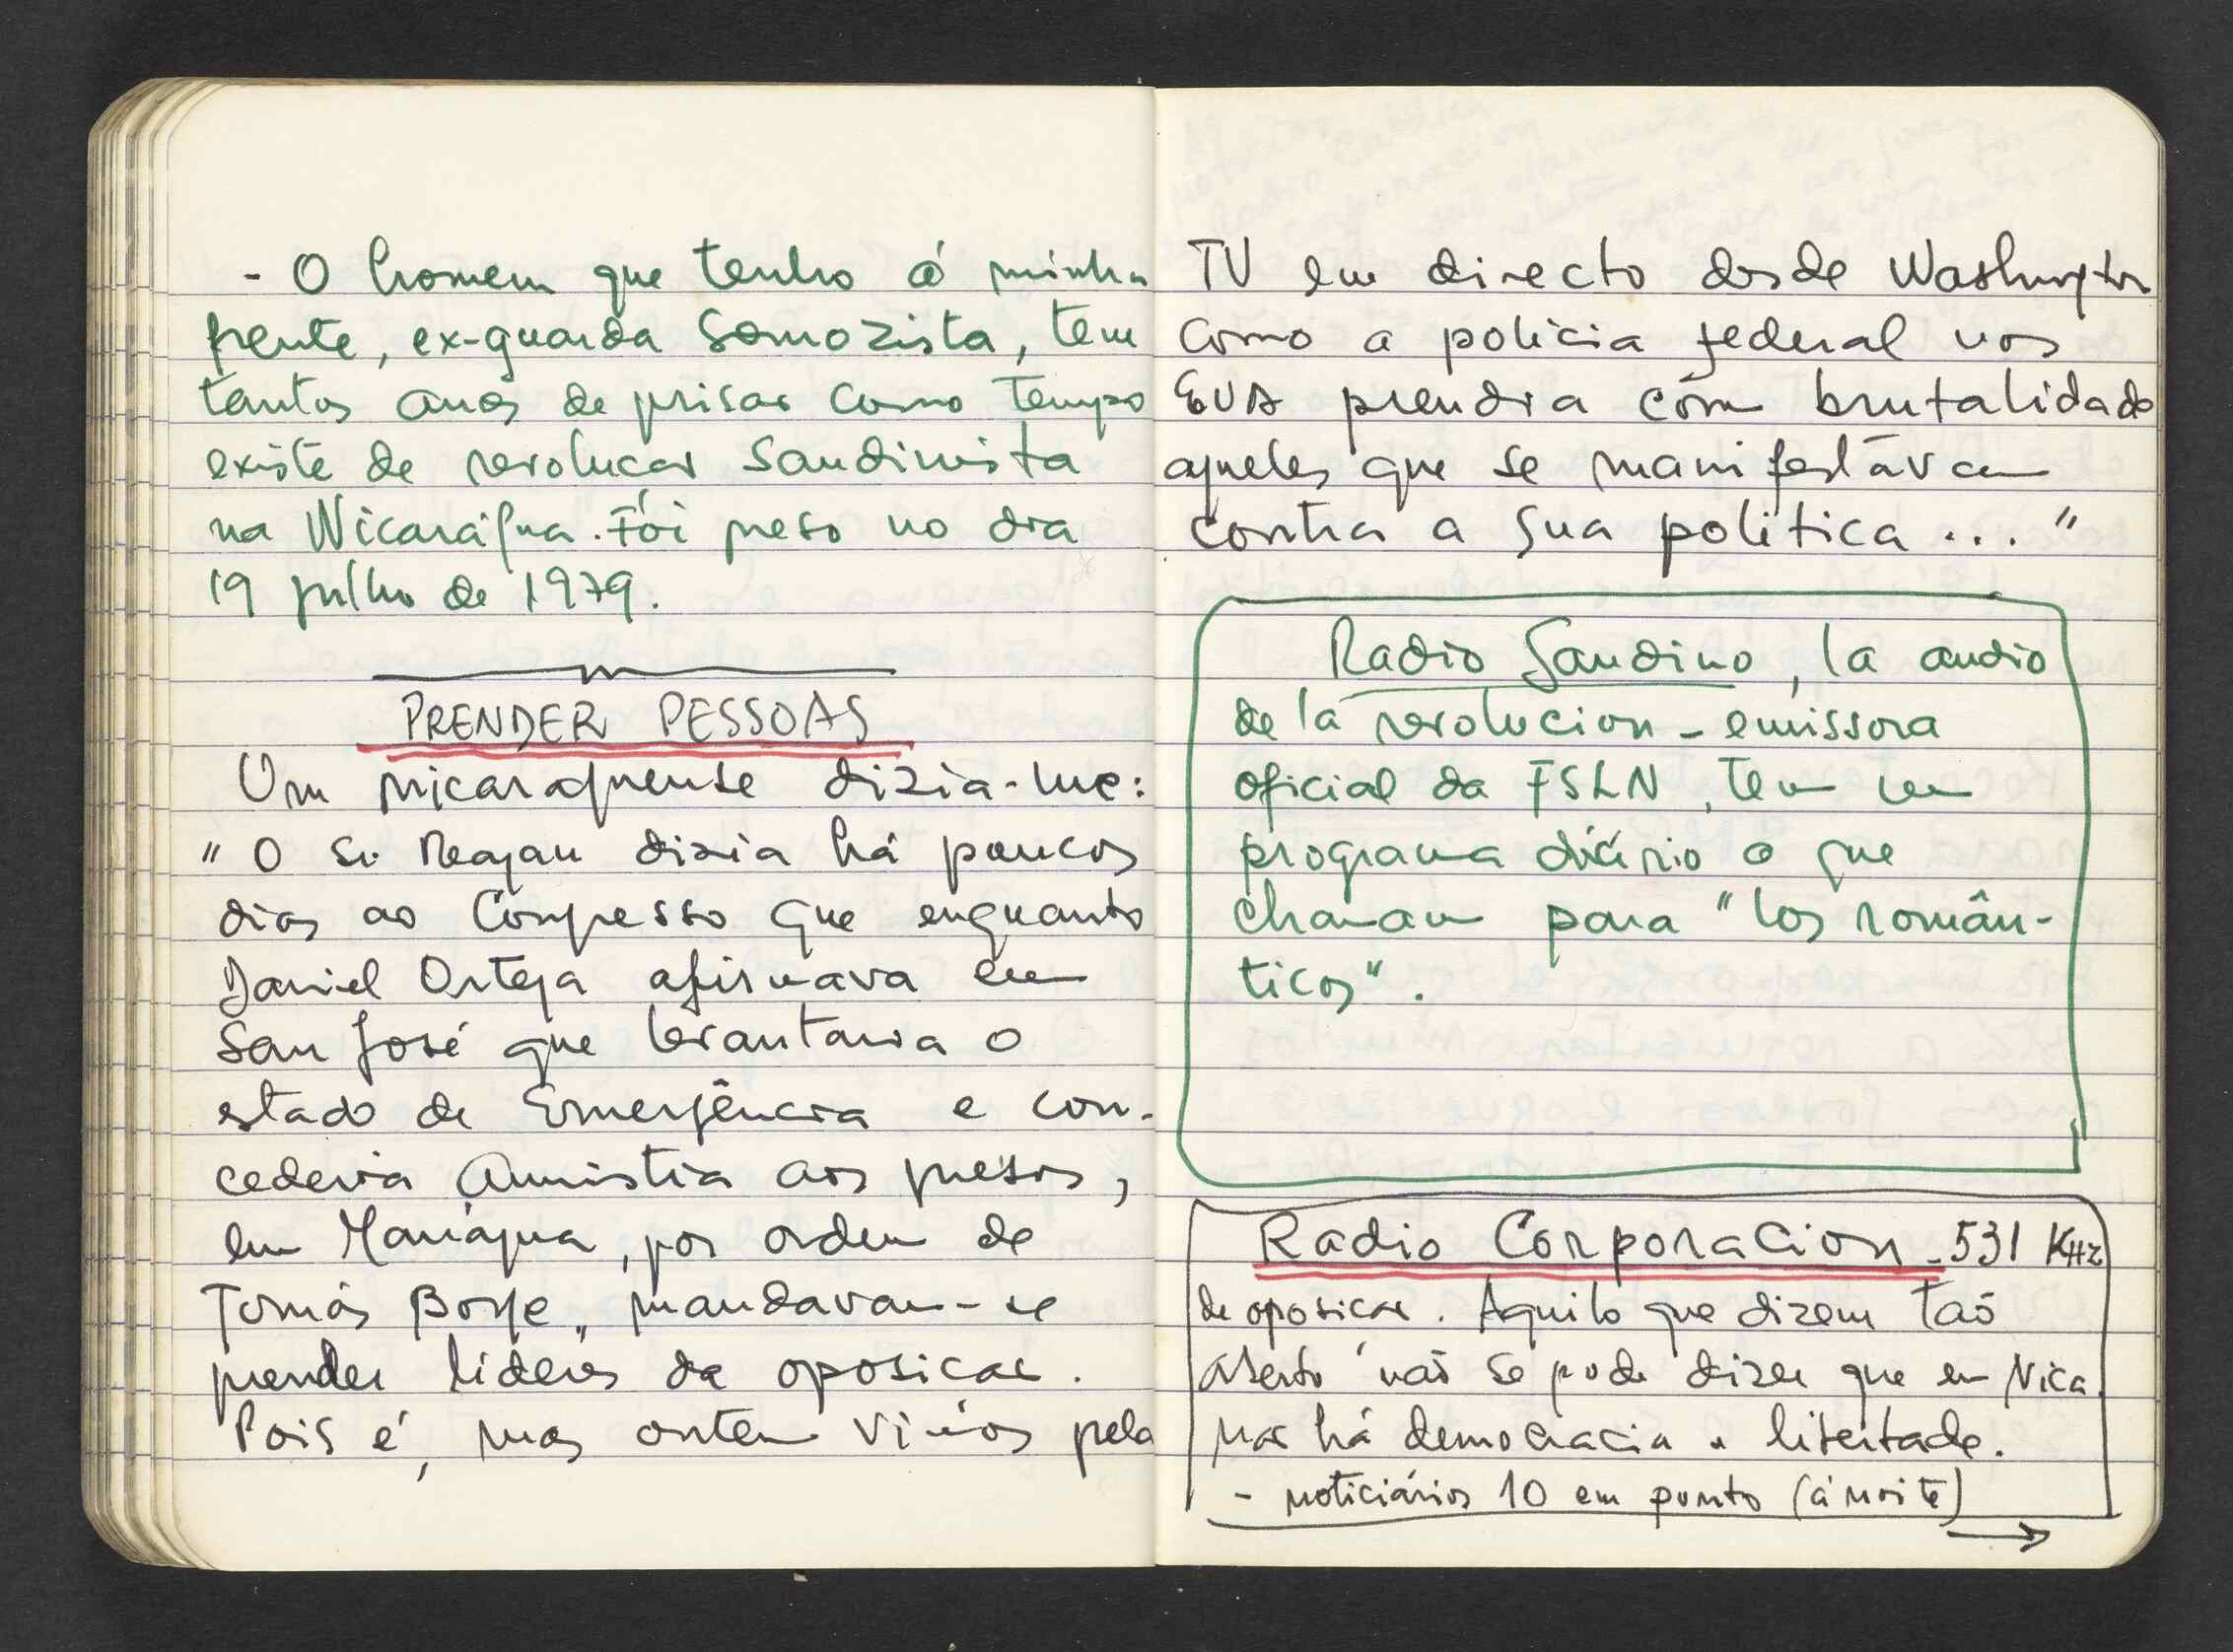 - O homem que tenho á minha
frente, ex-guarda Somozista, tem
tantos anos de prisao como tempo
existe de revolucao Sandinista
na Nicarágua. Foi preso no dia
19 julho de 1979.
PRENDER PESSOAS
Um nicaraguense dizia-me:
" O Sr. Reagan dizia há poucos
dias ao Congresso que enquanto
Daniel Ortega afirmava em
San José que levantaria o
estado de Emergência e con-
cederia Amnistia aos presos,
em Manágua, por ordem de
Tomás Borge, mandavam-se
prender lideres da oposicao.
Pois é, mas ontem vimos pela
TV em directo desde Washington
como a policia federal nos
EUA prendia com brutalidade
aqueles que se manifestávam
contra a sua politica ... "
Radio Sandino, la audio
de la revolucion - emissora
oficial da FSLN, tem um
programa diário a que
chamam para "los român-
ticos".
Radio Corporacion - 531 KHz
de oposicao. Aquilo que dizem tao
aberto nao se pode dizer que em Nica.
nao há democracia e libertade.
- noticiários 10 em ponto (á noite)
→